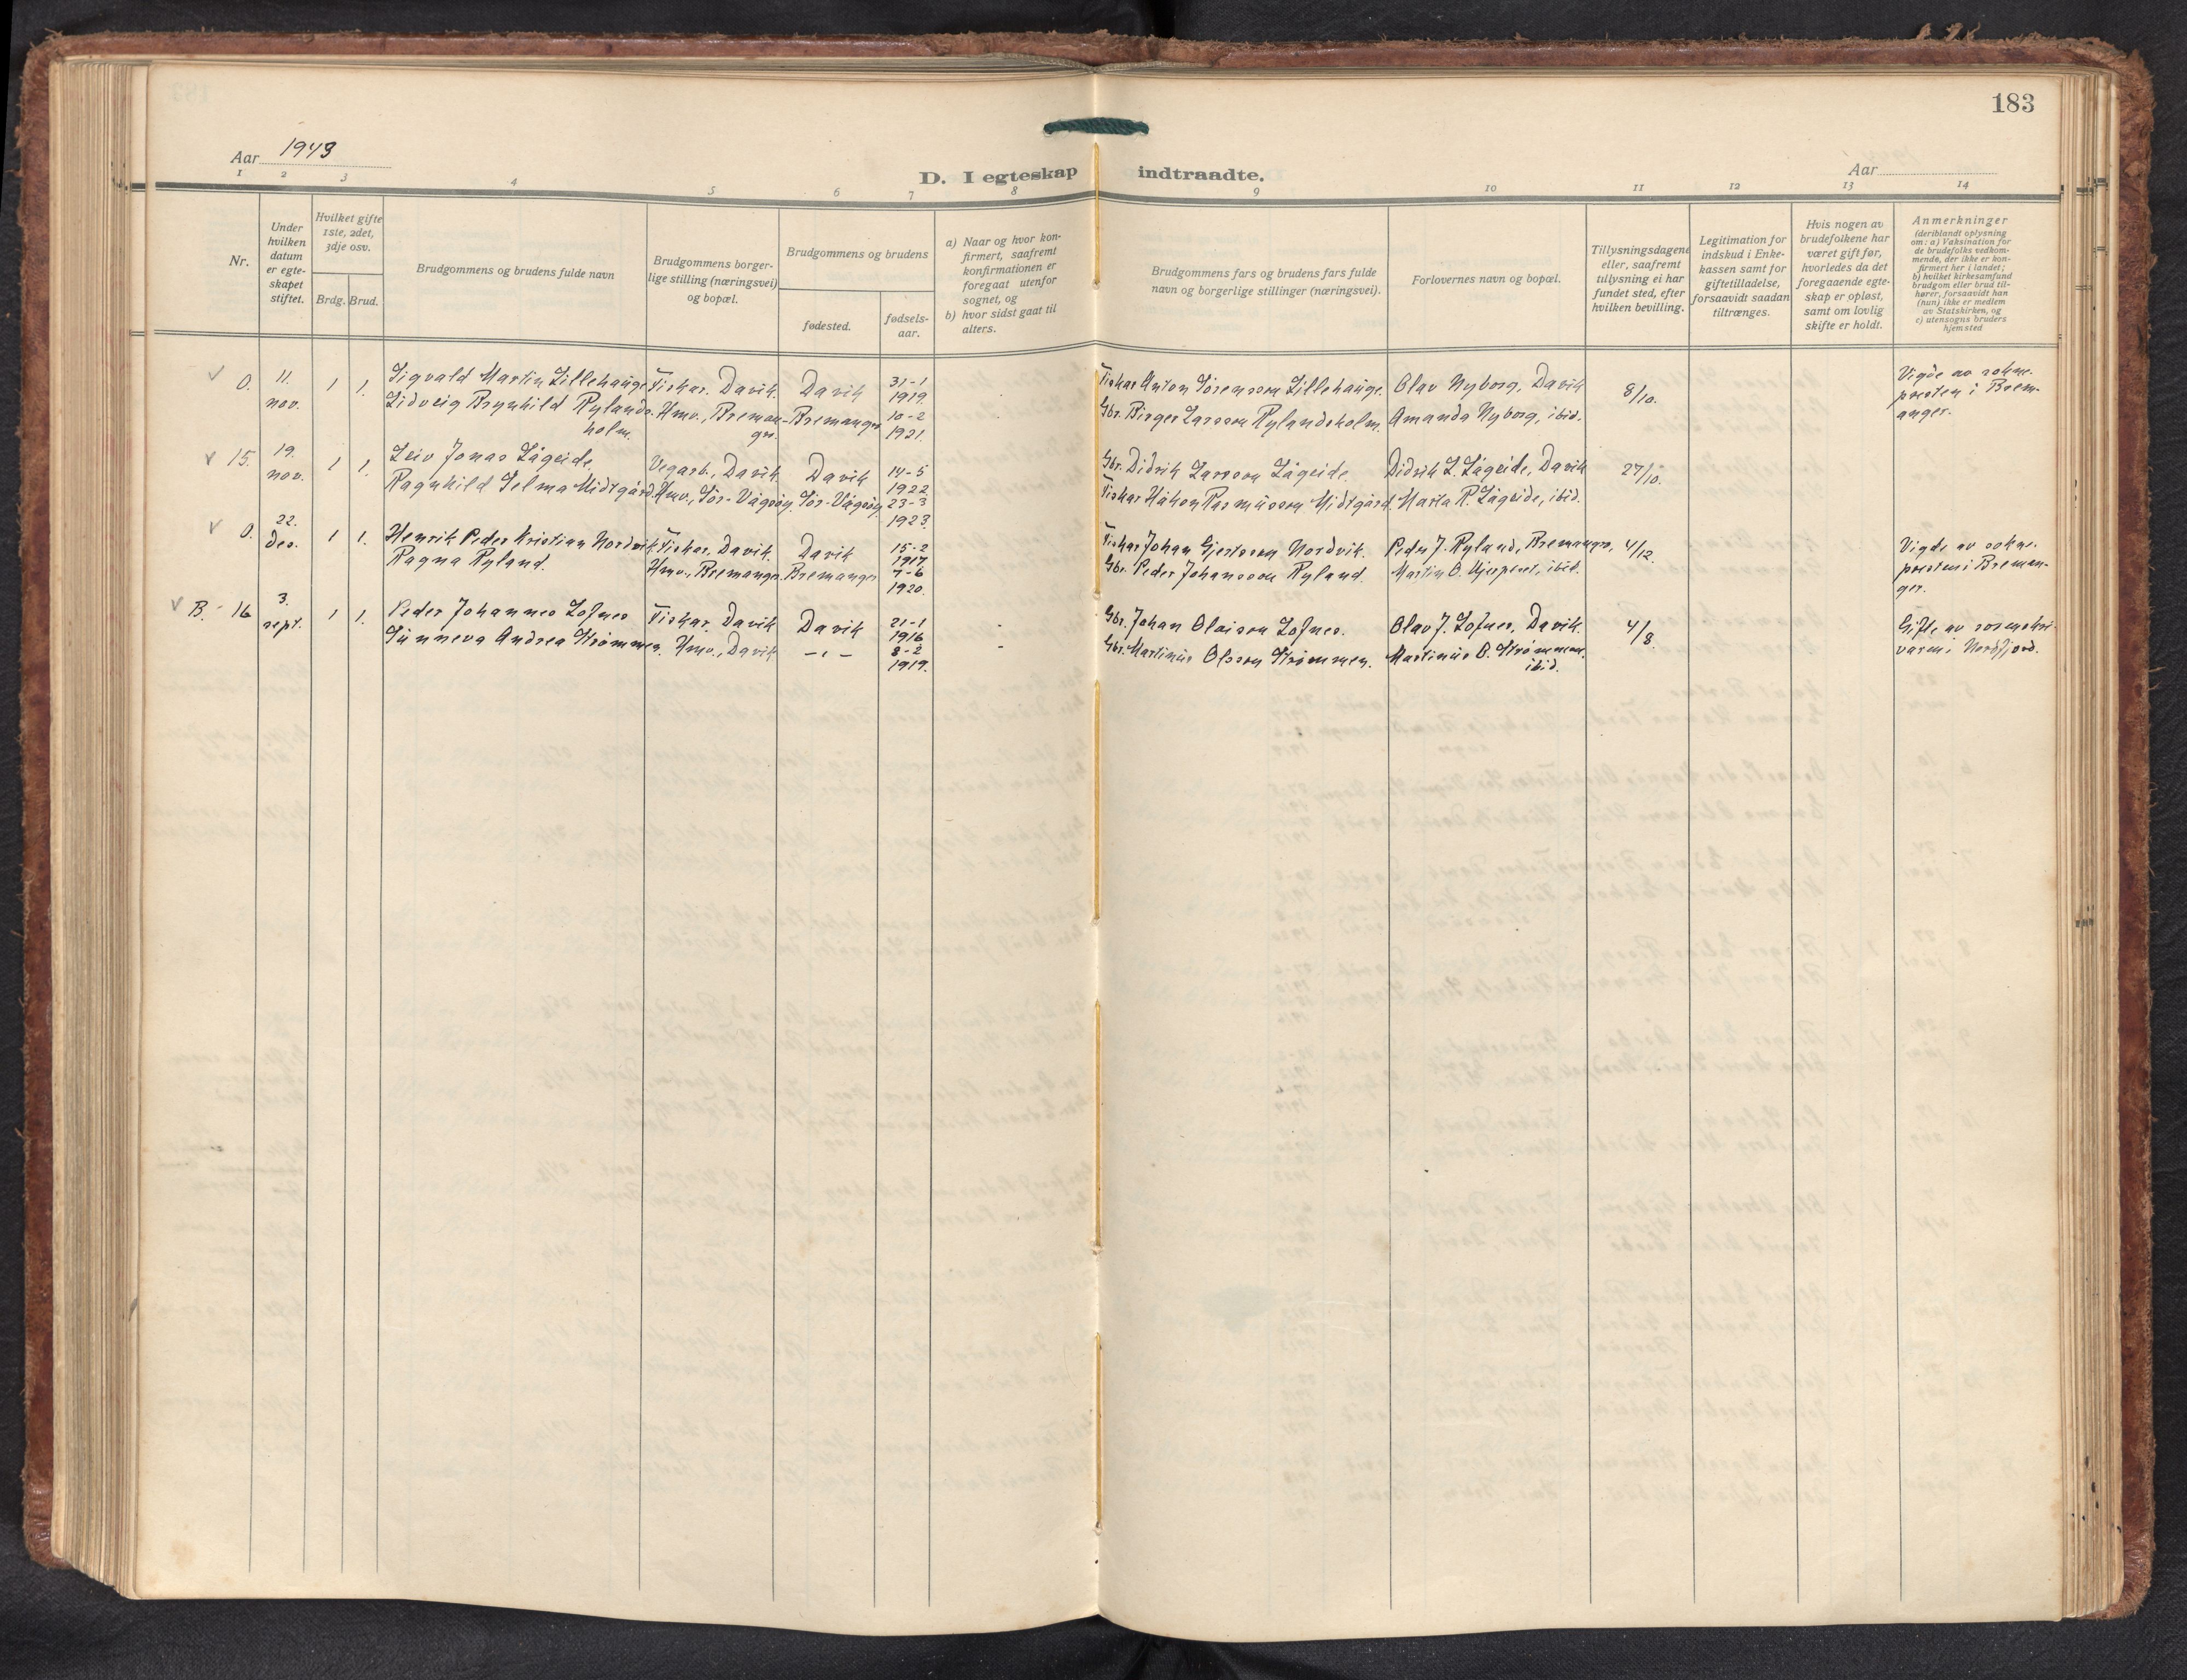 183
Aar 1943
Aar
D. I egteskap indtraadte.
1 2 3 4 5 6 7 8 9 10 11 12 13 14
Nr.
Under hvilken datum er egte-skapet stiftet.
Hvilket gifte 1ste, 2det, 3dje osv.
Brdg. Brud.
Brudgommens og brudens fulde navn
Brudgommens borger-
lige stilling (næringsvei)
og bopæl.
Brudgommens og brudens
fødested.
fødsels-
aar.
a) Naar og hvor kon-
firmert, saafremt
konfirmationen er
foregaat utenfor
sognet, og
b) hvor sidst gaat til
alters.
Brudgommens fars og brudens fars fulde
navn og borgerlige stillinger (næringsvei).
Forlovernes navn og bopæl.
Tillysningsdagene
eller, saafremt
tillysning ei har
fundet sted, efter
hvilken bevilling.
Legitimation for
indskud i Enke-
kassen samt for
giftetilladelse,
forsaavidt saadan
tiltrænges.
Hvis nogen av
brudefolkene har
været gift før,
hvorledes da det
foregaaende egte-
skap er opløst,
samt om lovlig
skifte er holdt.
Anmerkninger
(deriblandt oplysning
om: a) Vaksination for
de brudefolks vedkom-
mende, der ikke er kon-
firmert her i landet;
b) hvilket kirkesamfund
brudgom eller brud til-
hører, forsaavidt han
(hun) ikke er medlem
av Statskirken, og
c) utensogns bruders
hjemsted
0. 11. nov. 1 1. Sigvald Martin Lillehauge Fiskar. Davik. Davik 31-1 1919 Fiskar Anton Sørensson Lillehauge. Olav Nyborg, Davik 8/10. Vigde av sokne-
Lidveig Brynhild Rylands- Hmv., Breman- Bremanger 10-2 Gbr. Birger Larsson Rylandsholm. Amanda Nyborg, ibid. presten i Brem-
holm. ger. 1921. anger.
15. 19. nov. 1 1. Leiv Jonas Lågeide. Vegarb., Davik Davik 14-5 1922 Gbr. Didrik Larsson Lågeide. Didrik L. Lågeide, Davik 27/10.
Ragnhild Selma Midtgård. Hmv., Sør-Vågsøy. Sør-Vågsøy. 23-3 1923. Fiskar Håkon Rasmusson Midtgård. Marta R. Lågeide, ibid.
0. 22. des. 1 1. Henrik Peder Kristian Nordvik. Fiskar, Davik. Davik 15-2 1917 Fiskar Johan Gjertsson Nordvik. Peder J. Ryland, Bremanger, 4/12. Vigde av sokne-
Ragna Ryland. Hmv., Bremanger. Bremanger 7-6 1920. Gbr. Peder Johansson Ryland. Martin O. ibid. presten i Breman-
ger.
B. 16 3. sept. 1 1. Peder Johannes Lofnes Fiskar. Davik Davik 21-1 1916 - Gbr. Johan Olaison Lofnes. Olav J. Lofnes, Davik. 4/8. Gifte av sorenskri-
Sunneva Andrea Strømmen. Hmv., Davik -"- 8-2 1919. - Gbr. Martinus Olsson Strømmen. Martinus O. Strømmen, varen i Nordfjord.
ibid.